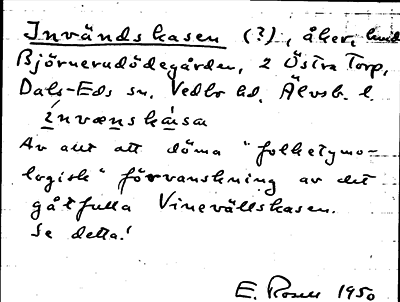 Invändskasen (?), åker,
Björnerudödegården, 2 Östra Torp,
Dals-Eds sn. Vedbo hd. Älvsb. l.
invænskása
Av allt att döma "folketymo-
logisk" förvanskning av det
gåtfulla Vinevällskasen.
Se detta!
E. Rosell 1950